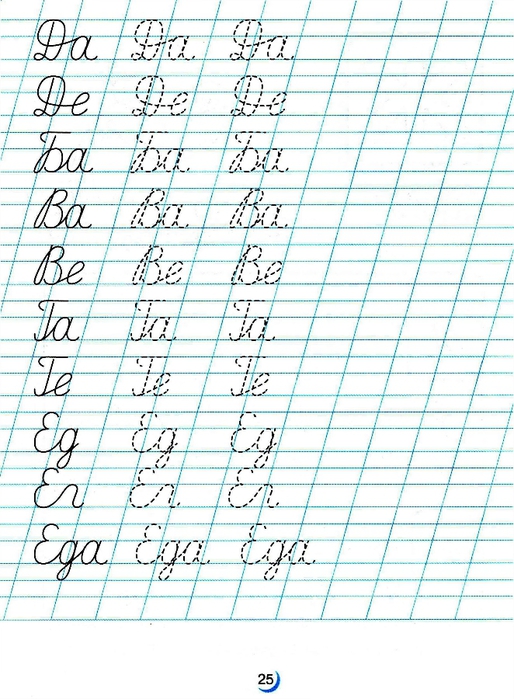 Да Да Да
Де Де Де
Ба Ба Ба
Ва Ва Ва
Ве Ве Ве
Га Га Га
Ге Ге Ге
Ед Ед Ед
Ег Ег Ег
Еда Еда Еда
25